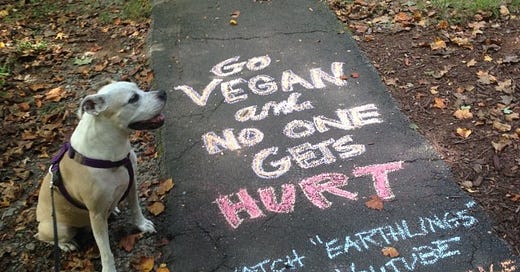 Go
VEGAN
and
NO ONE
GETS
HURT
WATCH "EARTHLINGS"
YOUTUBE